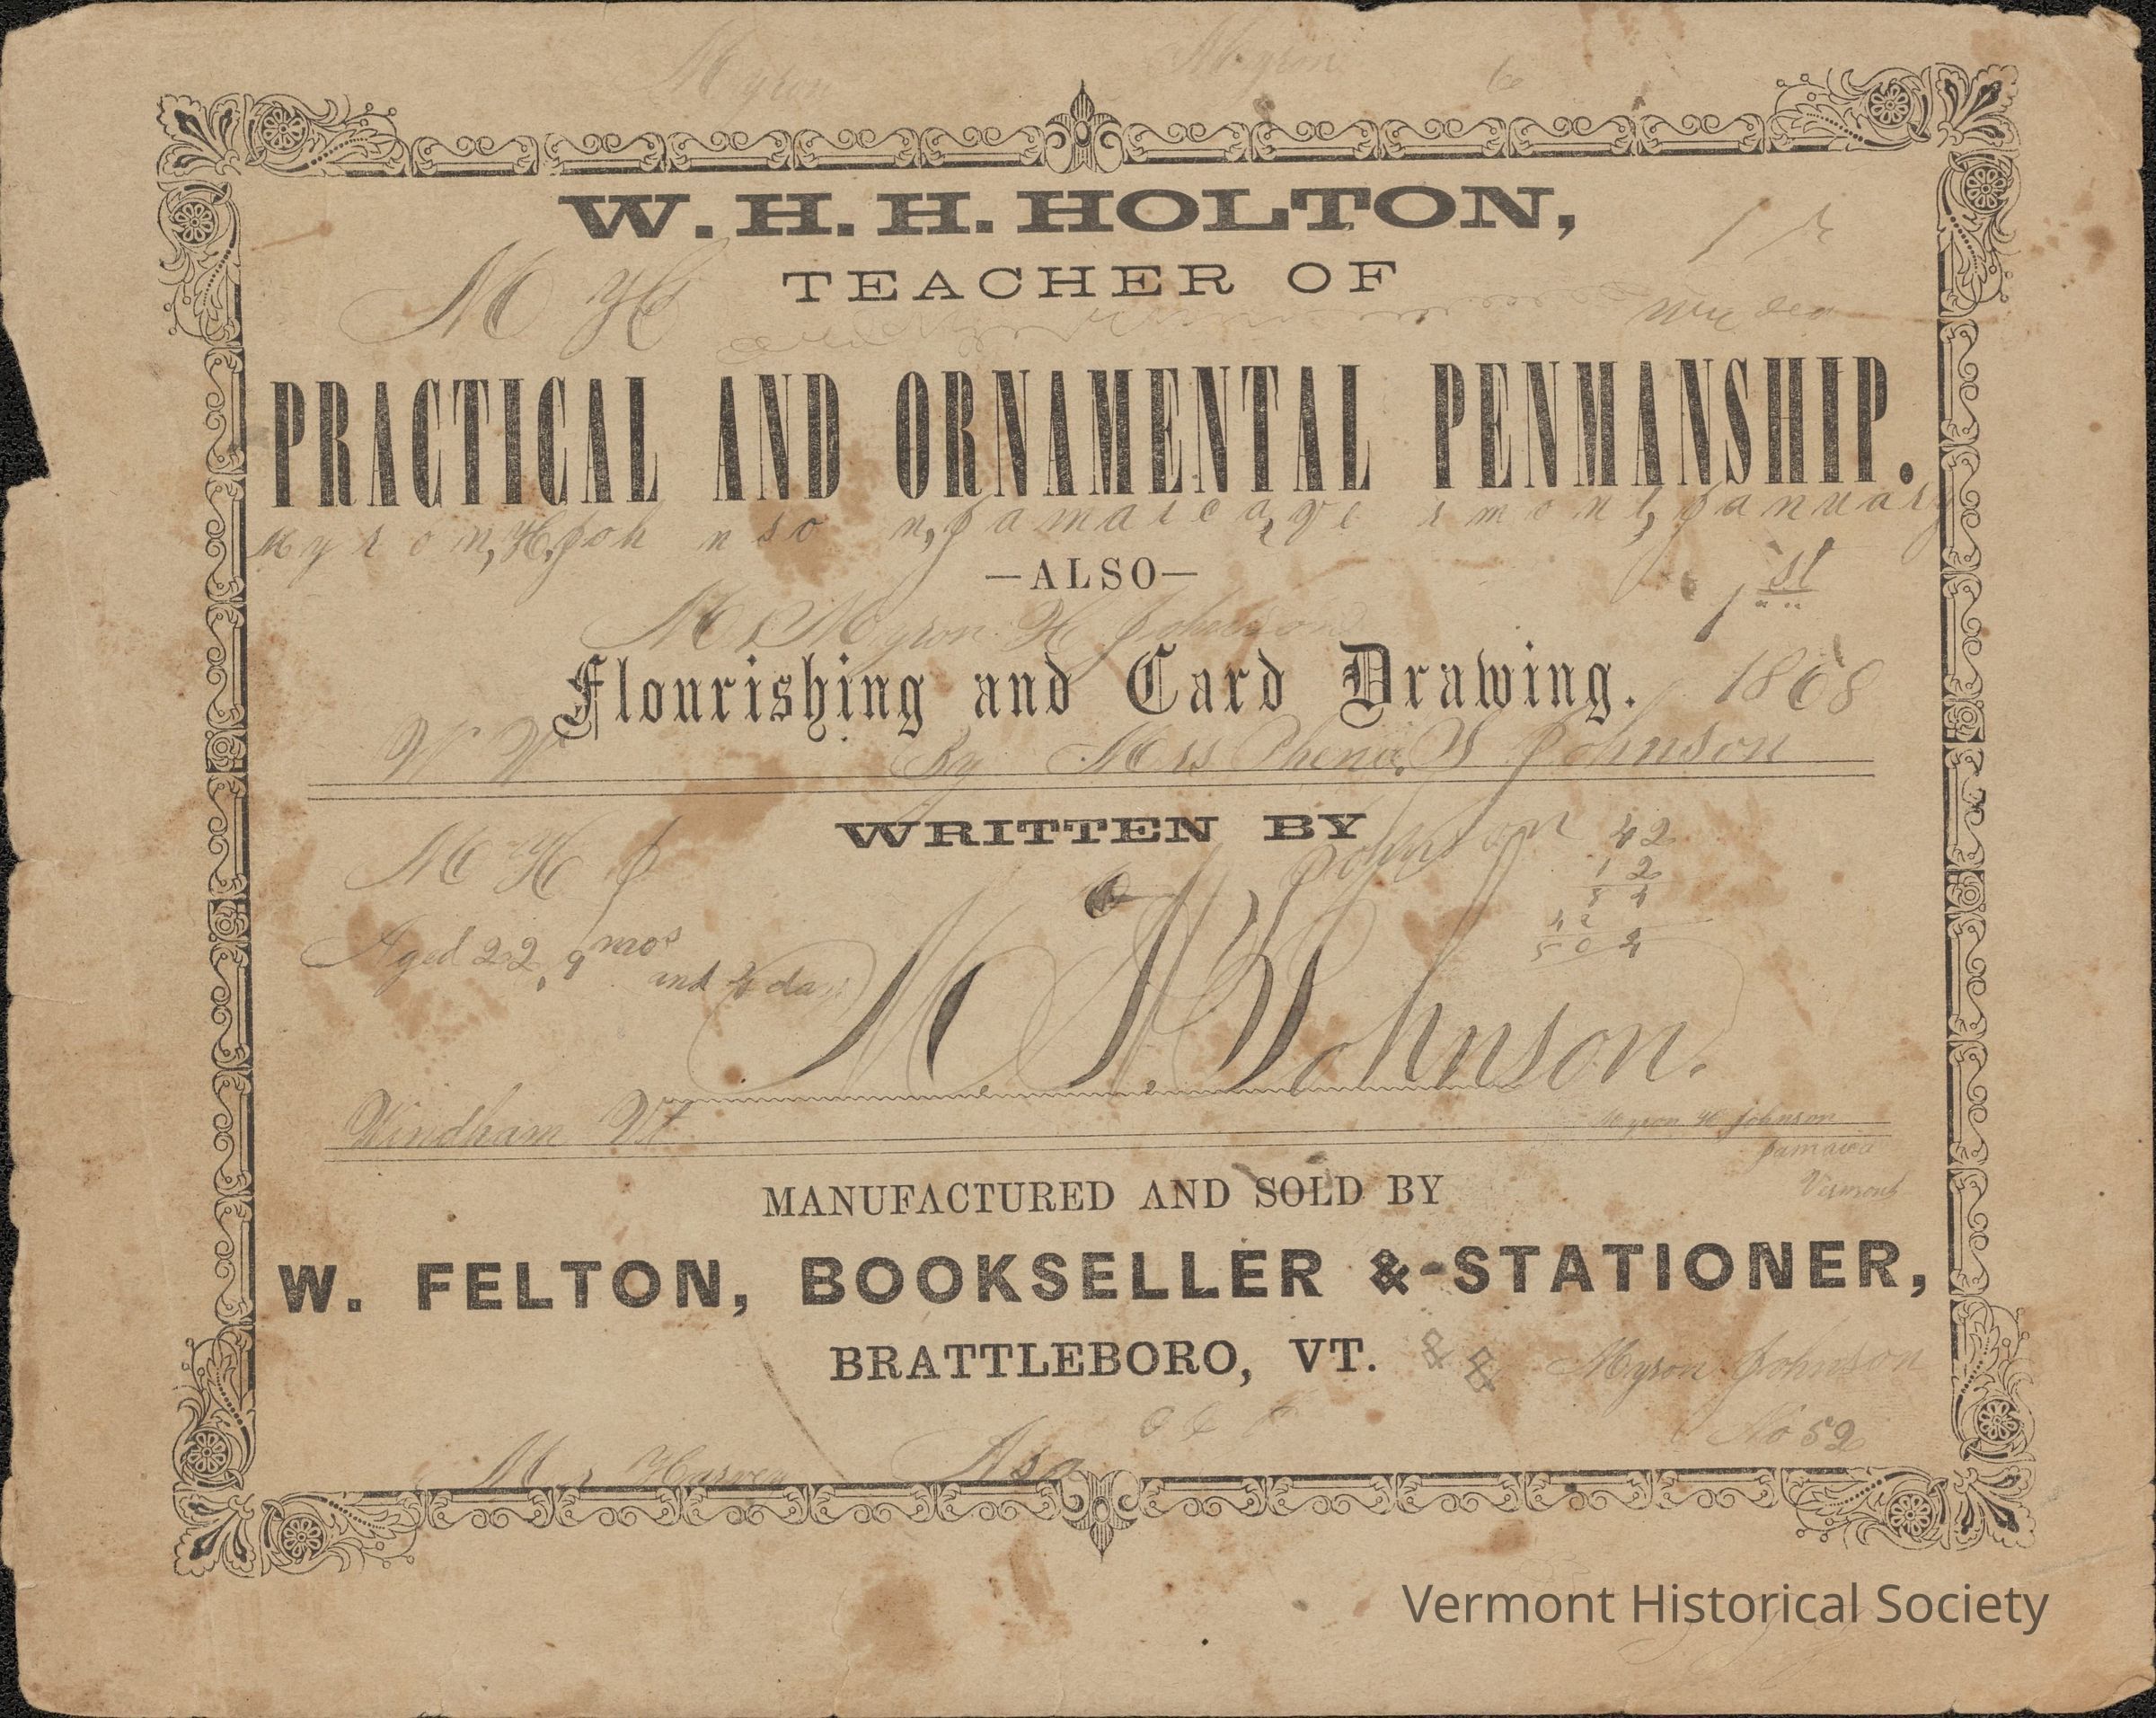 Myron Myron
W. H. H. HOLTON,
TEACHER OF
M H
PRACTICAL AND ORNAMENTAL PENMANSHIP.
Myron, H. Johnson, Jamaica, Vermont, January
1st
—ALSO—
Mr Myron H Johnson
Flourishing and Card Drawing.
1868
By Mrs Johnson
WRITTEN BY
Johnson
42
12
84
42
504
M H J
Aged 22, 9 mos
and 4 days
M. H. Johnson.
Windham Vt
Myron H Johnson
Jamaica
Vermont
MANUFACTURED AND SOLD BY
W. FELTON, BOOKSELLER & STATIONER,
BRATTLEBORO, VT.
& &
Myron Johnson
No 52
Mr Harvey Asa
Vermont Historical Society